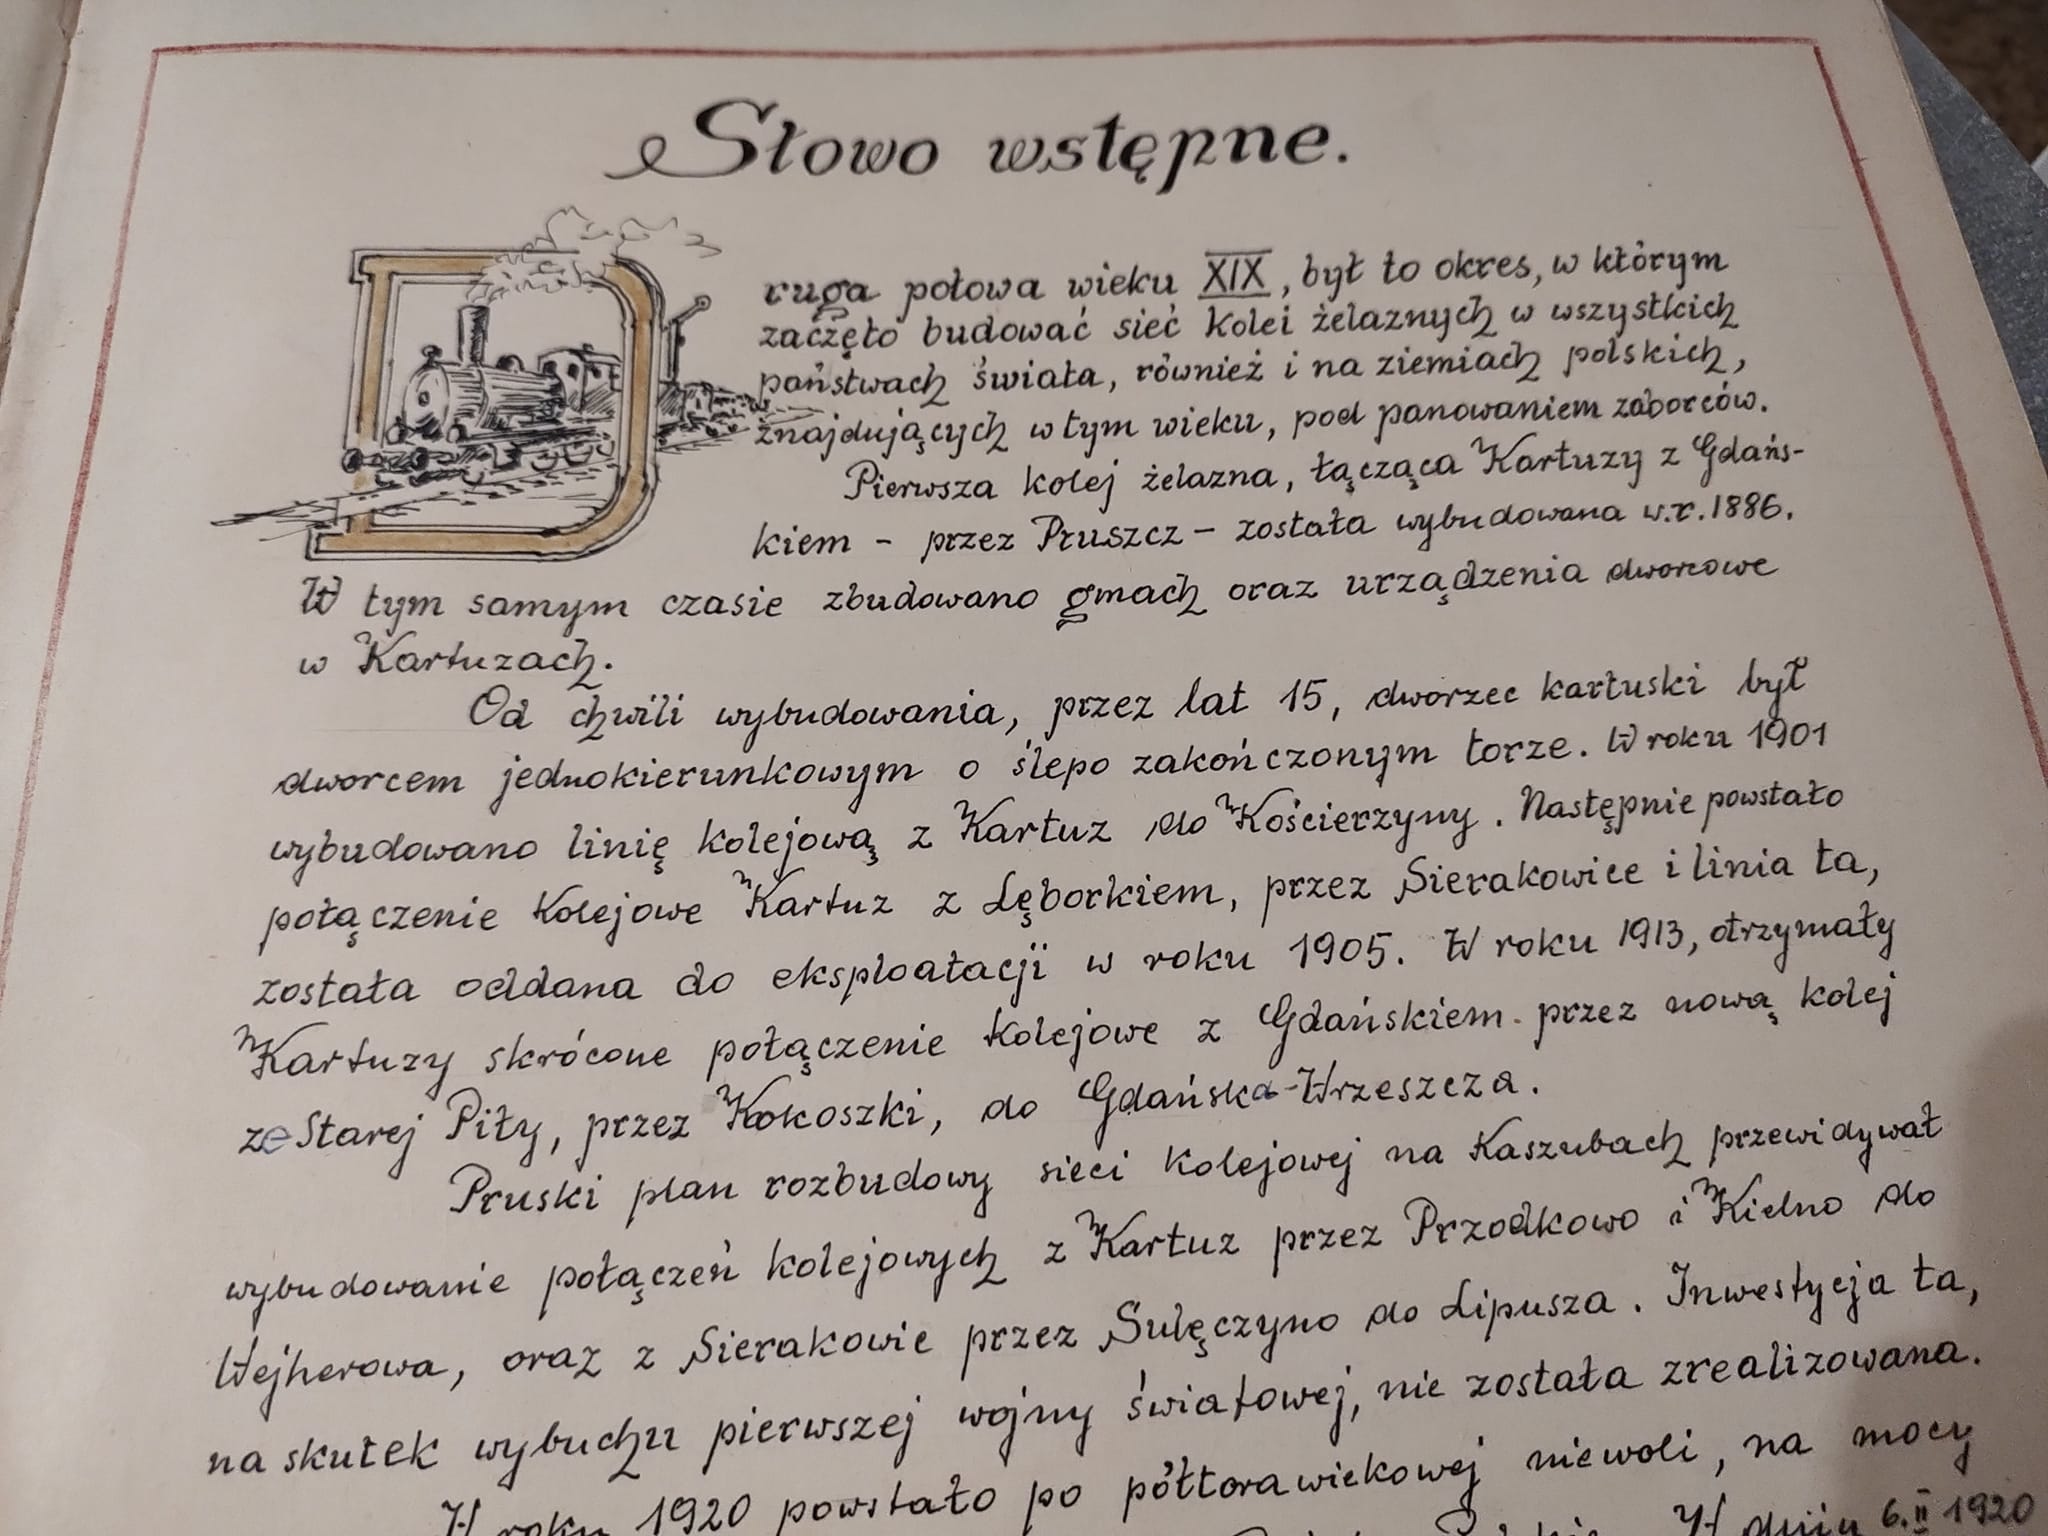 Słowo wstępne.
Druga połowa wieku XIX, był to okres, w którym
zaczęto budować sieć kolei żelaznych w wszystkich
państwach świata, również i na ziemiach polskich,
znajdujących w tym wieku, pod panowaniem zaborców.
Pierwsza kolej żelazna, łącząca Kartuzy z Gdańs-
kiem - przez Pruszcz - została wybudowana w.r. 1886.
W tym samym czasie zbudowano gmach oraz urządzenia dworcowe
w Kartuzach.
Od chwili wybudowania, przez lat 15, dworzec kartuski był
dworcem jednokierunkowym o ślepo zakończonym torze. W roku 1901
wybudowano linię kolejową z Kartuz do Kościerzyny. Następnie powstało
połączenie kolejowe Kartuz z Lęborkiem, przez Sierakowice i linia ta,
została oddana do eksploatacji w roku 1905. W roku 1913, otrzymały
Kartuzy skrócone połączenie kolejowe z Gdańskiem przez nową kolej
ze Starej Piły, przez Kokoszki, do Gdańska-Wrzeszcza.
Pruski plan rozbudowy sieci kolejowej na Kaszubach przewidywał
wybudowanie połączeń kolejowych z Kartuz przez Przodkowo i Kielno do
Wejherowa, oraz z Sierakowic przez Sulęczyno do Lipusza. Inwestycja ta,
na skutek wybuchu pierwszej wojny światowej, nie została zrealizowana.
W roku 1920 powstało po półtorawiekowej niewoli, na mocy
W dniu 6.II 1920